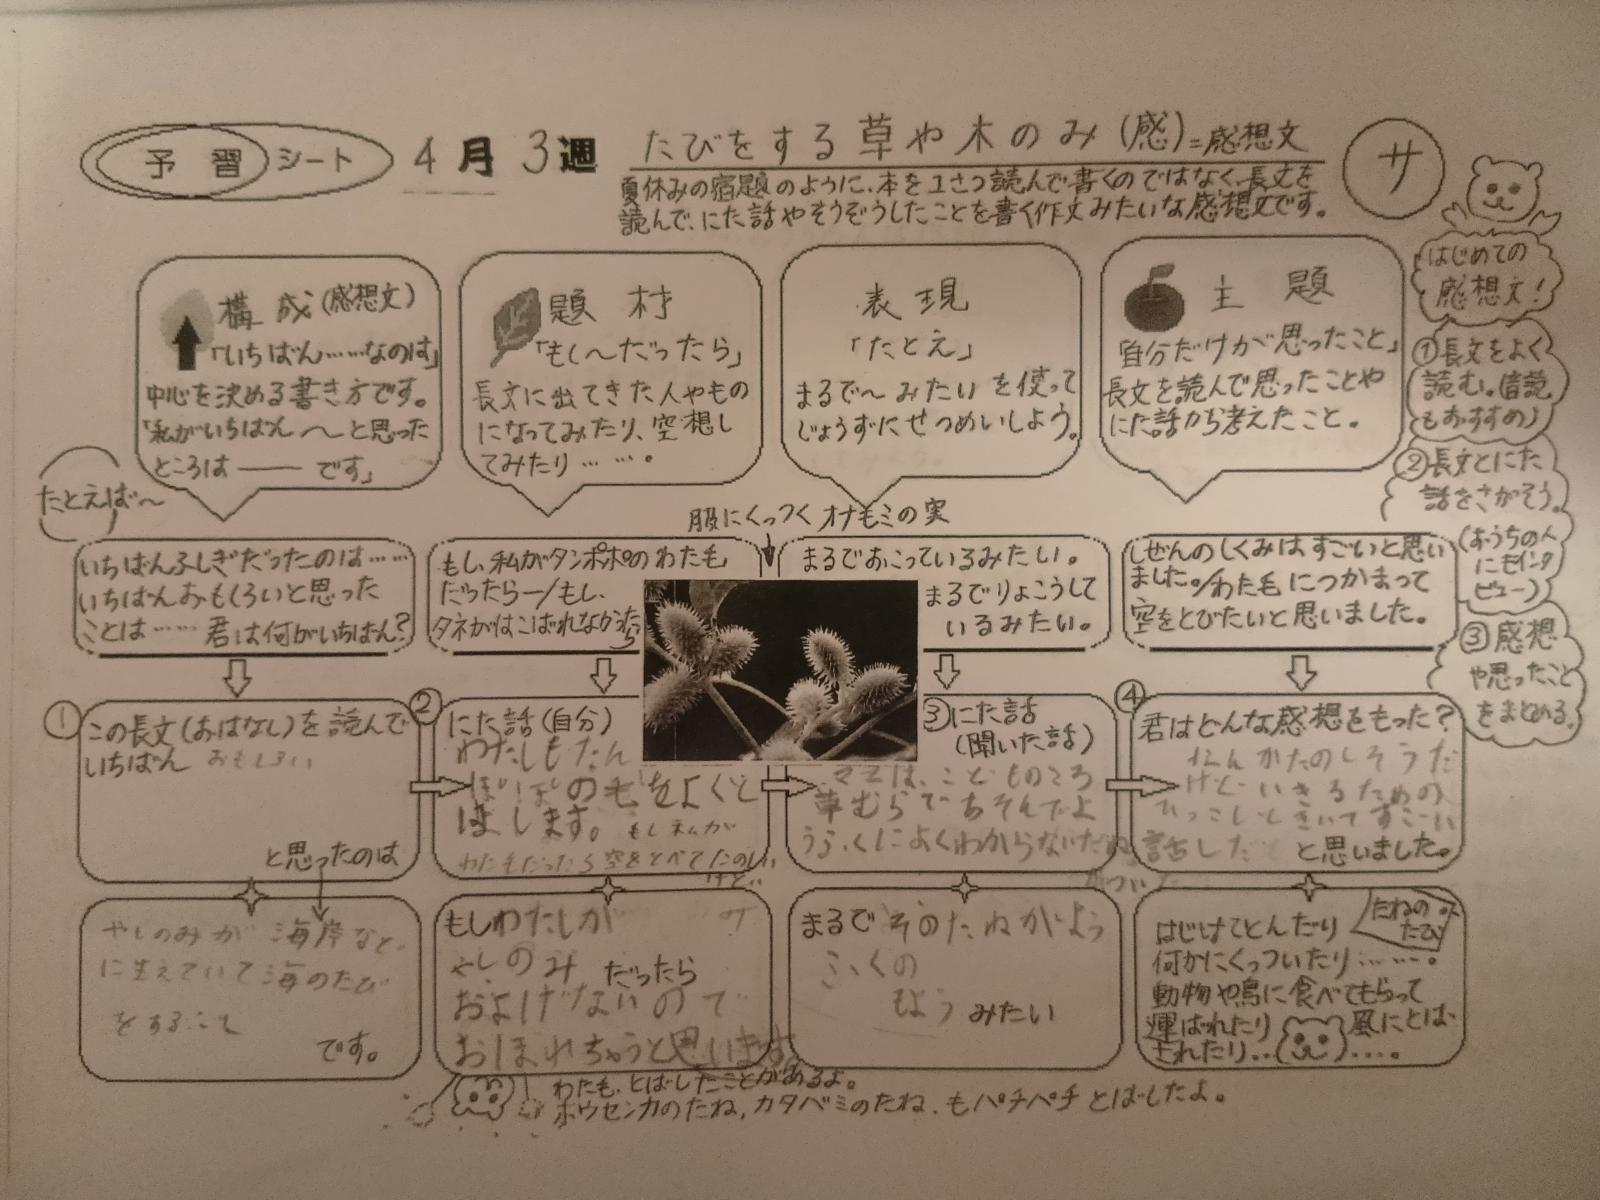 予習シート 4月3週
たびをする草や木のみ(感)=感想文
サ
夏休みの宿題のように、本を1さつ読んで書くのではなく長文を
読んで、にた話やそうぞうしたことを書く作文みたいな感想文です。
構成(感想文)
「いちばん……なのは」
中心を決める書き方です。
「私がいちばん〜と思った
ところは―― です」
題材
「もし〜だったら」
長文に出てきた人やもの
になってみたり、空想し
てみたり……。
表現
「たとえ」
まるで〜みたいを使って
じょうずにせつめいしよう。
主題
「自分だけが思ったこと」
長文を読んで思ったことや
にた話から考えたこと。
はじめての
感想文!
①長文をよく
読む。(音読
もおすすめ)
②長文とにた
話をさがそう。
(おうちの人
にもインタ
ビュー)
③感想
や思ったこと
をまとめる。
たとえば〜
服にくっつくオナモミの実
いちばんふしぎだったのは……
いちばんおもしろいと思った
ことは……君は何がいちばん?
もし、私がタンポポのわた毛
だったら―/もし、
タネがはこばれなかったら
まるでおこっているみたい。
まるでりょこうして
いるみたい。
しぜんのしくみはすごいと思い
ました。/わた毛につかまって
空をとびたいと思いました。
①
この長文(おはなし)を読んで
いちばん おもしろい
と思ったのは
②
にた話(自分)
わたしもたん
ぽぽの毛をよくと
ばします。もし私が
わたもだったら空をとべてたのしい
けど…
③にた話
(聞いた話)
ママは、こどものころ
草むらであそんでよ
うふくによくわからないたね
がついた
話した
④
君はどんな感想をもった?
たのしそうだ
けど いきるための
ひっこしときいてすごい
と思いました。
やしのみが海岸など
に生えていて海のたび
をすること
です。
もしわたしが
やしのみ だったら
およげないので
おぼれちゃうと思います。
まるでそのたねがよう
ふくの
もよう みたい
たねの
たび
はじけてとんだり
何かにくっついたり……。
動物や鳥に食べてもらって
運ばれたり 風にとば
されたり……。
わた毛、とばしたことがあるよ。
ホウセンカのたね、カタバミのたね、もパチパチとばしたよ。